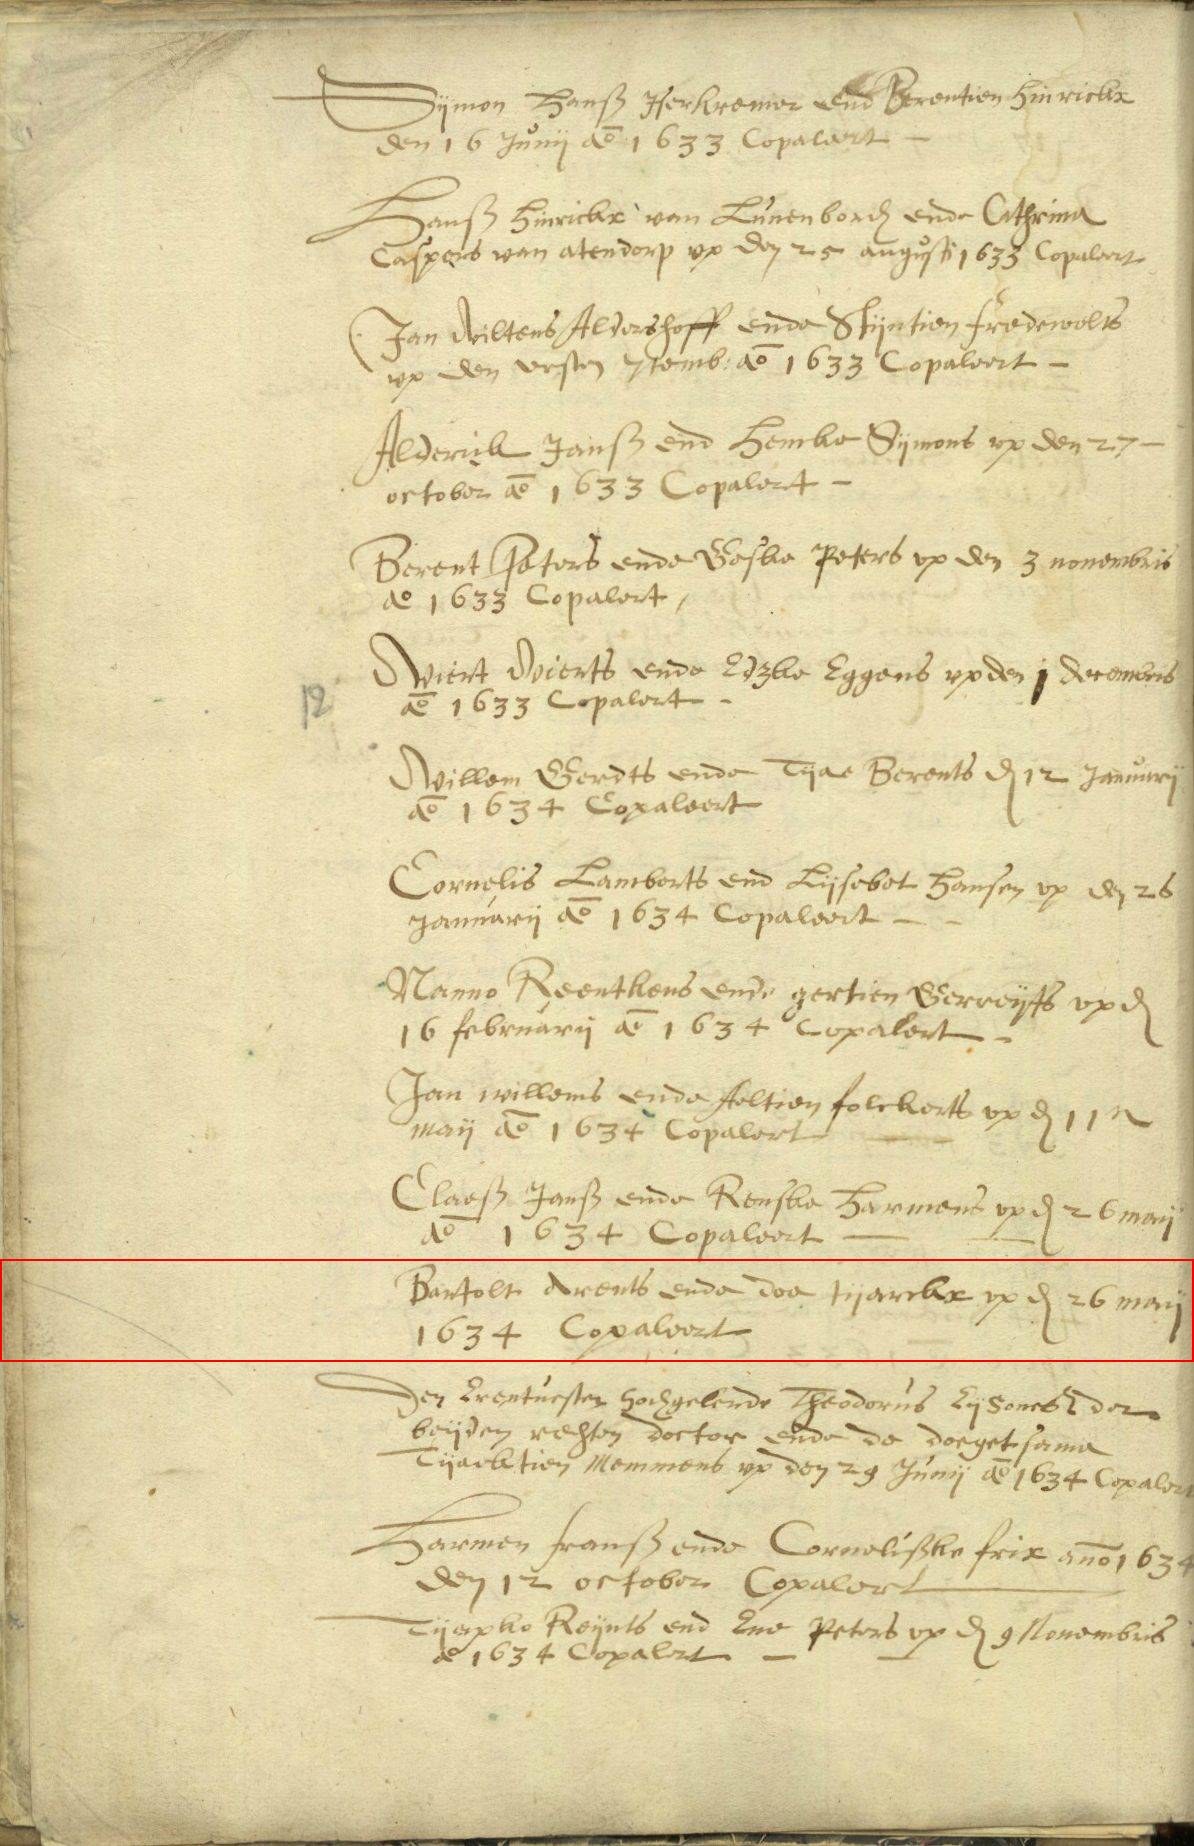 Sijmon Hanß Iserkremer end Berentien Hinrickx
den 16 Junij ao 1633 Copaleert
Hanß Hinrickx van Lunenborch ende Cathrina
Caspers van atendorp up den 25 augusti 1633 Copaleert
Jan Wiltens Aldershoff ende Stijntien fredewolts
up den ersten 7temb: ao 1633 Copaleert
Alderick Janß end Hemke Sijmons up den 27
october ao 1633 Copalert
Berent Peters ende Geske Peters up den 3 novembris
ao 1633 Copalert
Wiert Wierts ende Edzke Eggens up den 1 decembris
ao 1633 Copalert
12
Willem Gerdts ende Tijae Berents den 12 Januarij
ao 1634 Copaleert
Cornelis Lamberts end Lijsebet Hansen up den 26
Januarij ao 1634 Copaleert
Nanno Reentkens ende gertien Gerreijts up den
16 februarij ao 1634 Copalert
Jan willems ende Aeltien folckerts up den 11
maij ao 1634 Copalert
Claeß Janß ende Renske Harmens up den 26 maij
ao 1634 Copaleert
Bartolt Arents ende doe tijarckx up den 26 maij
1634 Copaleert
Den Erentuesten hochgelerde Theodorus der
beijden rechten doctor ende de doegetsame
Tijacktien Memmens up den 29 Junij ao 1634 Copalert
Harmen franß ende Cornelißke frix ano 1634
den 12 october Copalert
Tijapko Reijnts end Ene Peters up den 9 Novembris
ao 1634 Copalert